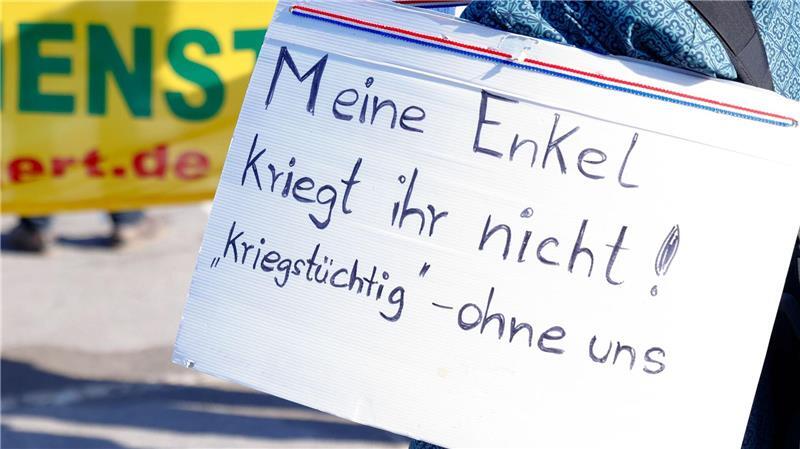 IENST
ert.de
Meine Enkel
kriegt ihr nicht!
„Kriegstüchtig“ – ohne uns